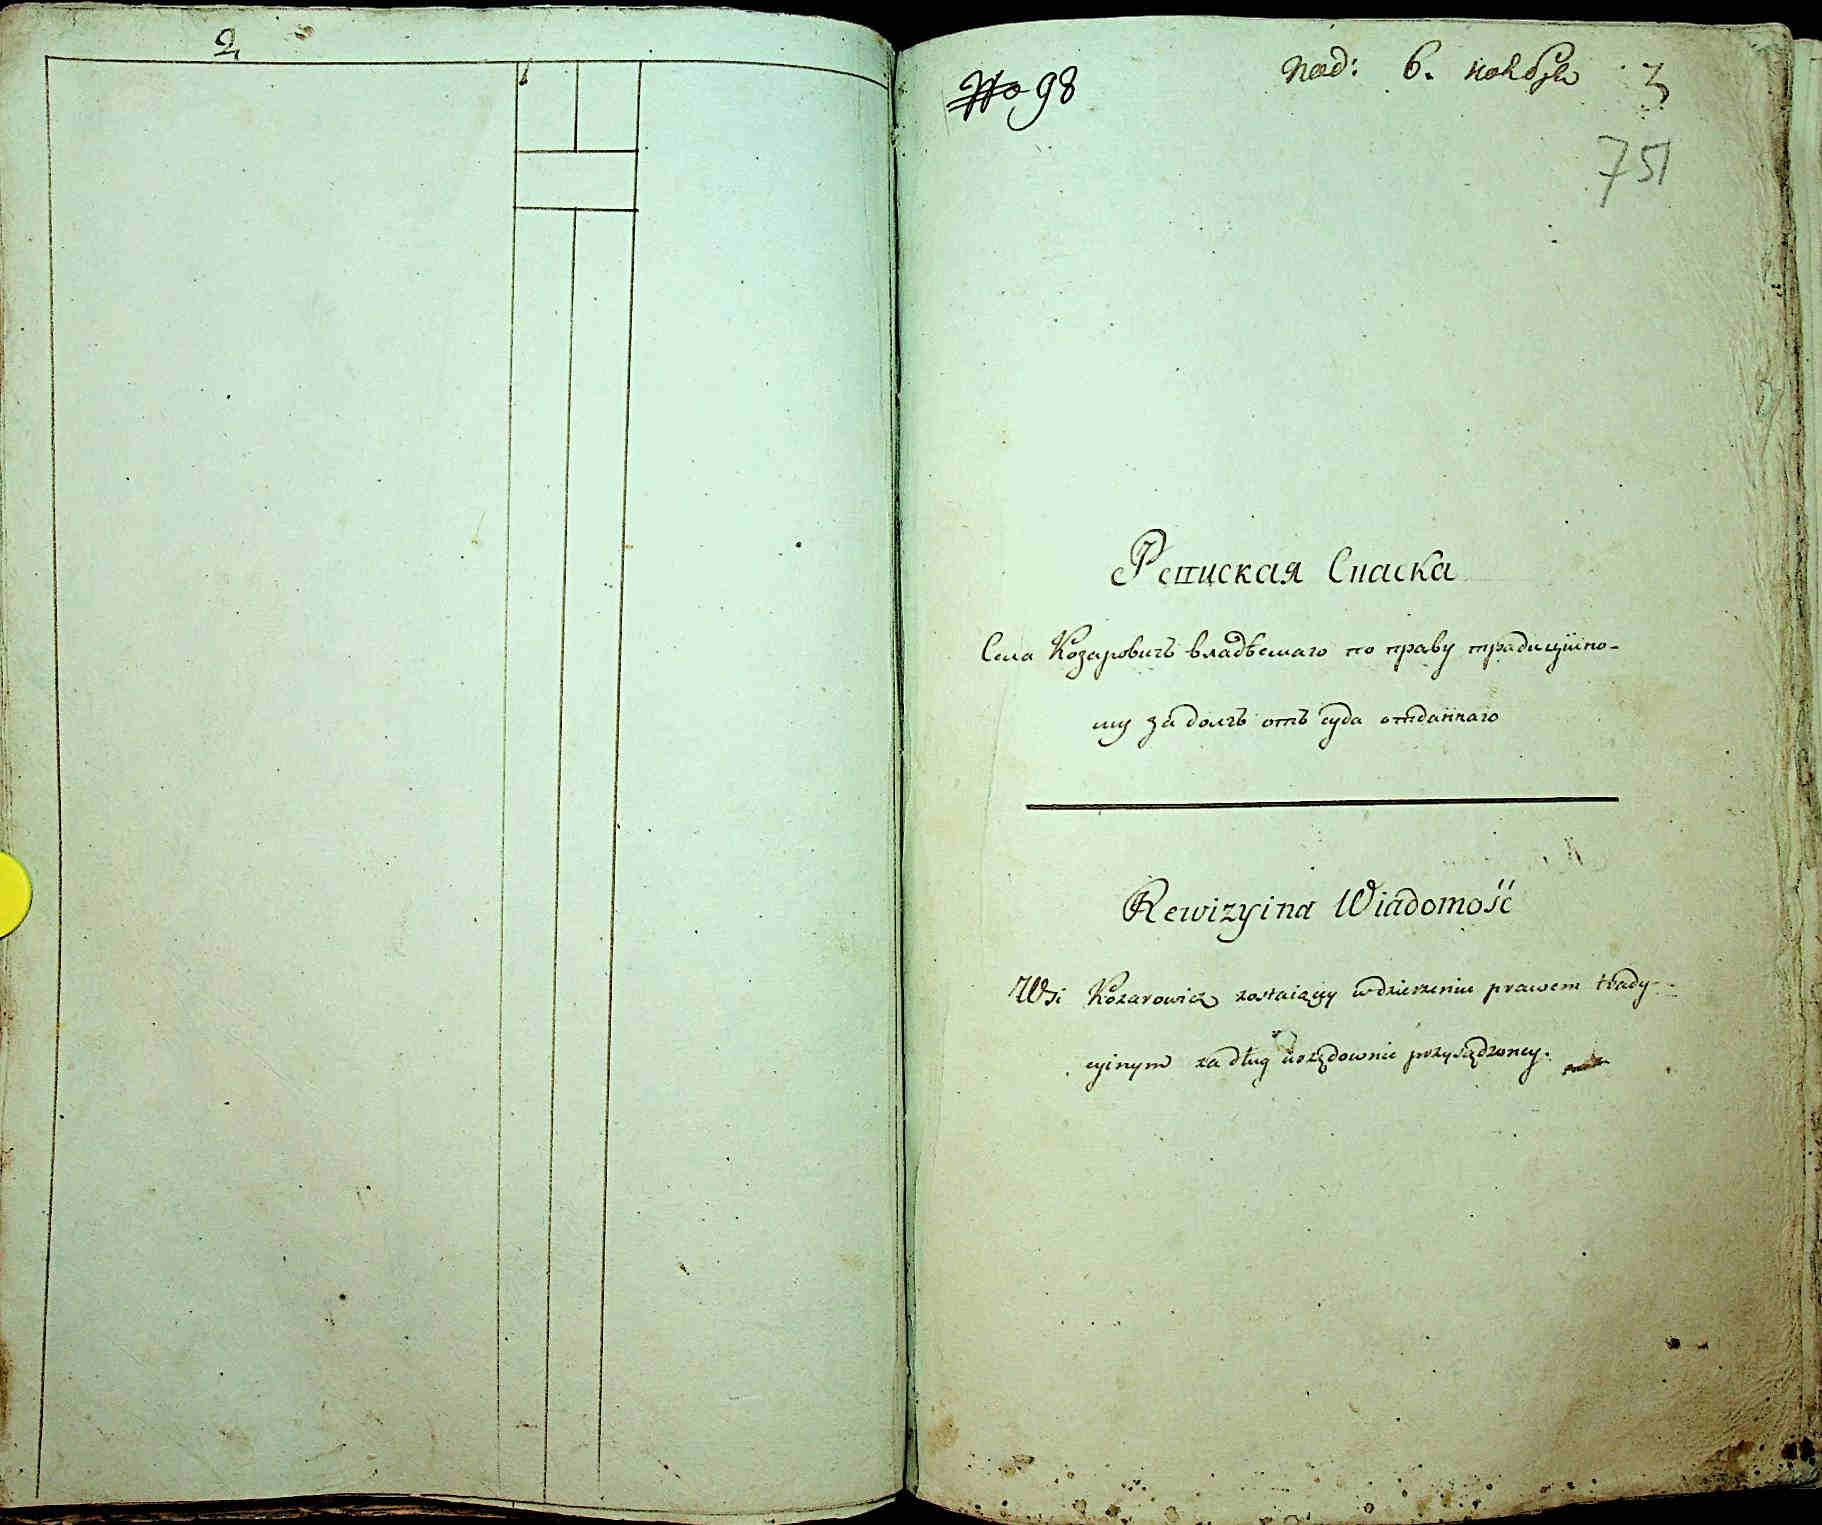 2
№ 98
Под: 6. ноября 3
751
Репиская Спаска
Села Козаровичъ владѣемаго по праву традицiйно-
му за долгъ отъ суда отданнаго
Rewizyina Wiadomość
Wsi Kozarowicz zostaiący w dzierzeniu prawem trady-
cyinym za dług urzędownie przysądzoney.